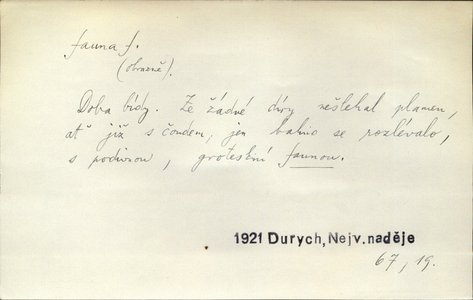 fauna f.
(obrazně).
Doba bídy. Ze žádné díry nešlehal plamen,
ať již s čoudem, jen bahno se rozlévalo,
s podivnou, groteskní faunou.
1921 Durych, Nejv. naděje
67, 19.